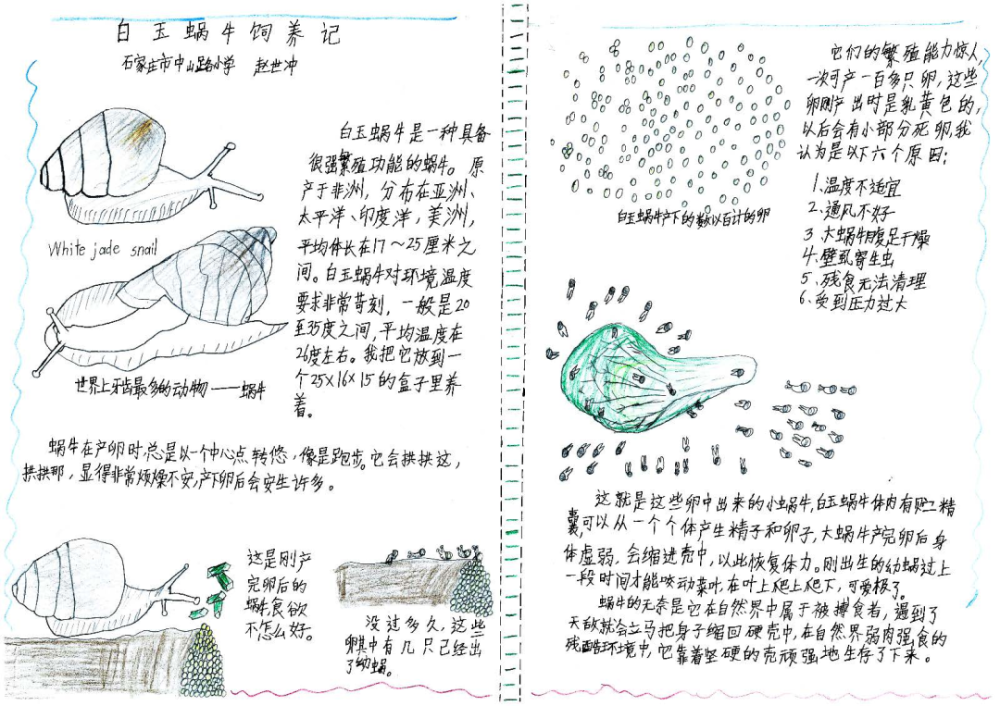 白玉蜗牛饲养记
石家庄市中山路小学 赵世冲
白玉蜗牛是一种具备
很强繁殖功能的蜗牛。原
产于非洲，分布在亚洲、
太平洋、印度洋，美洲，
平均体长在17～25厘米之
间。白玉蜗牛对环境温度
要求非常苛刻，一般是20
至35度之间，平均温度在
26度左右。我把它放到一
个25×16×15的盒子里养
着。
White jade snail
世界上牙齿最多的动物——蜗牛
蜗牛在产卵时，总是以一个中心点转悠，像是跑步。它会拱拱这，
拱拱那，显得非常烦燥不安，产下卵后会安生许多。
这是刚产
完卵后的
蜗牛，食欲
不怎么好。
没过多久，这些
卵其中有几只已经出
了幼蜗。
白玉蜗牛产下的数以百计的卵
它们的繁殖能力惊人，
一次可产一百多只卵，这些
卵刚产出时是乳黄色的，
以后会有小部分死卵，我
认为是以下六个原因：
1、温度不适宜
2、通风不好
3、大蜗牛腹足干燥
4、壁虱寄生虫
5、残食无法清理
6、受到压力过大
这就是这些卵中出来的小蜗牛，白玉蜗牛体内有贮精
囊，可以从一个个体产生精子和卵子，大蜗牛产完卵后身
体虚弱，会缩进壳中，以此恢复体力。刚出生的幼蜗过上
一段时间才能咬动菜叶，在叶上爬上爬下，可爱极了。
蜗牛的无奈是它在自然界中属于被捕食者，遇到了
天敌就会立马把身子缩回硬壳中，在自然界弱肉强食的
残酷环境中，它靠着坚硬的壳顽强地生存了下来。